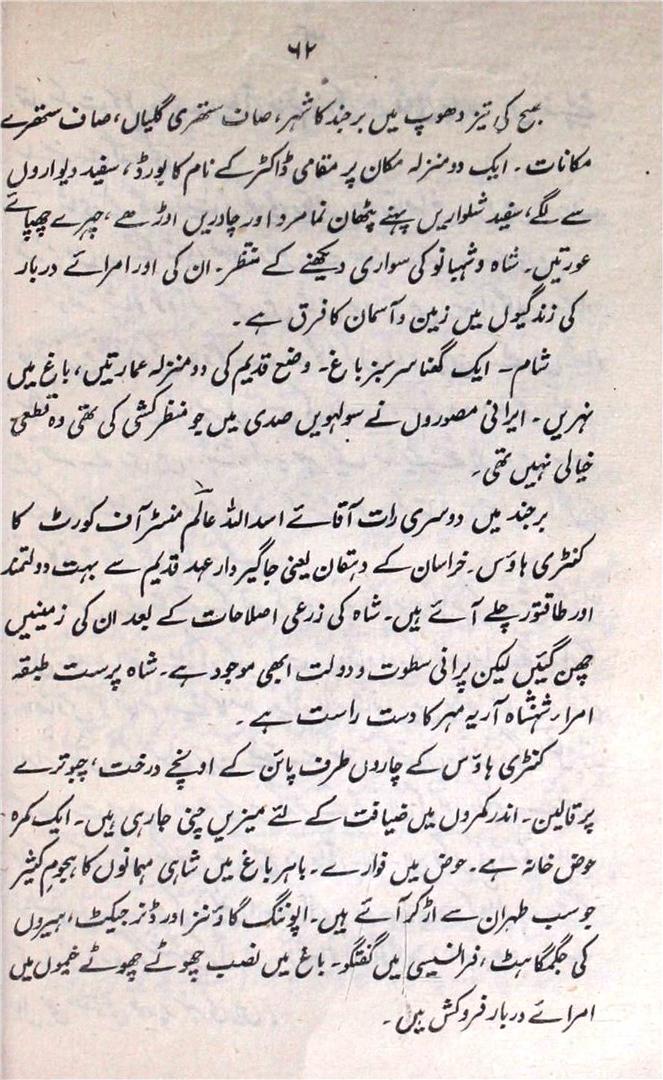 ۶۲
صبح کی تیز دھوپ میں برجند کا شہر، صاف ستھری گلیاں، صاف ستھرے
مکانات۔ ایک دو منزلہ مکان پر مقامی ڈاکٹر کے نام کا بورڈ، سفید دیواروں
سے لگے، سفید شلواریں پہنے پٹھان نما مرد اور چادریں اوڑھے، چہرے چھپائے
عورتیں۔ شاہ و شہبانو کی سواری دیکھنے کے منتظر۔ ان کی اور امرائے دربار
کی زندگیوں میں زمین و آسمان کا فرق ہے۔
شام۔ ایک گھنا سرسبز باغ۔ وضع قدیم کی دو منزلہ عمارتیں، باغ میں
نہریں۔ ایرانی مصوروں نے سولہویں صدی میں جو منظر کشی کی تھی وہ قطعی
خیالی نہیں تھی۔
برجند میں دوسری رات آقائے اسداللہ عالم منسٹر آف کورٹ کا
کنٹری ہاؤس۔ خراسان کے دہقان یعنی جاگیردار عہد قدیم سے بہت دولتمند
اور طاقتور چلے آئے ہیں۔ شاہ کی زرعی اصلاحات کے بعد ان کی زمینیں
چھن گئیں لیکن پرانی سطوت و دولت ابھی موجود ہے۔ شاہ پرست طبقہ
امراء شہنشاہ آریہ مہر کا دست راست ہے۔
کنٹری ہاؤس کے چاروں طرف پائن کے اونچے درخت، چبوترے
پر قالین۔ اندر کمروں میں ضیافت کے لئے میزیں چنی جا رہی ہیں۔ ایک کمرہ
حوض خانہ ہے۔ حوض میں فوارے۔ باہر باغ میں شاہی مہمانوں کا ہجوم کثیر
جو سب طہران سے اڑ کر آئے ہیں۔ ایوننگ گاؤنز اور ڈنر جیکٹ، ہیروں
کی جگمگاہٹ، فرانسیسی میں گفتگو۔ باغ میں نصب چھوٹے چھوٹے خیموں میں
امرائے دربار فروکش ہیں۔